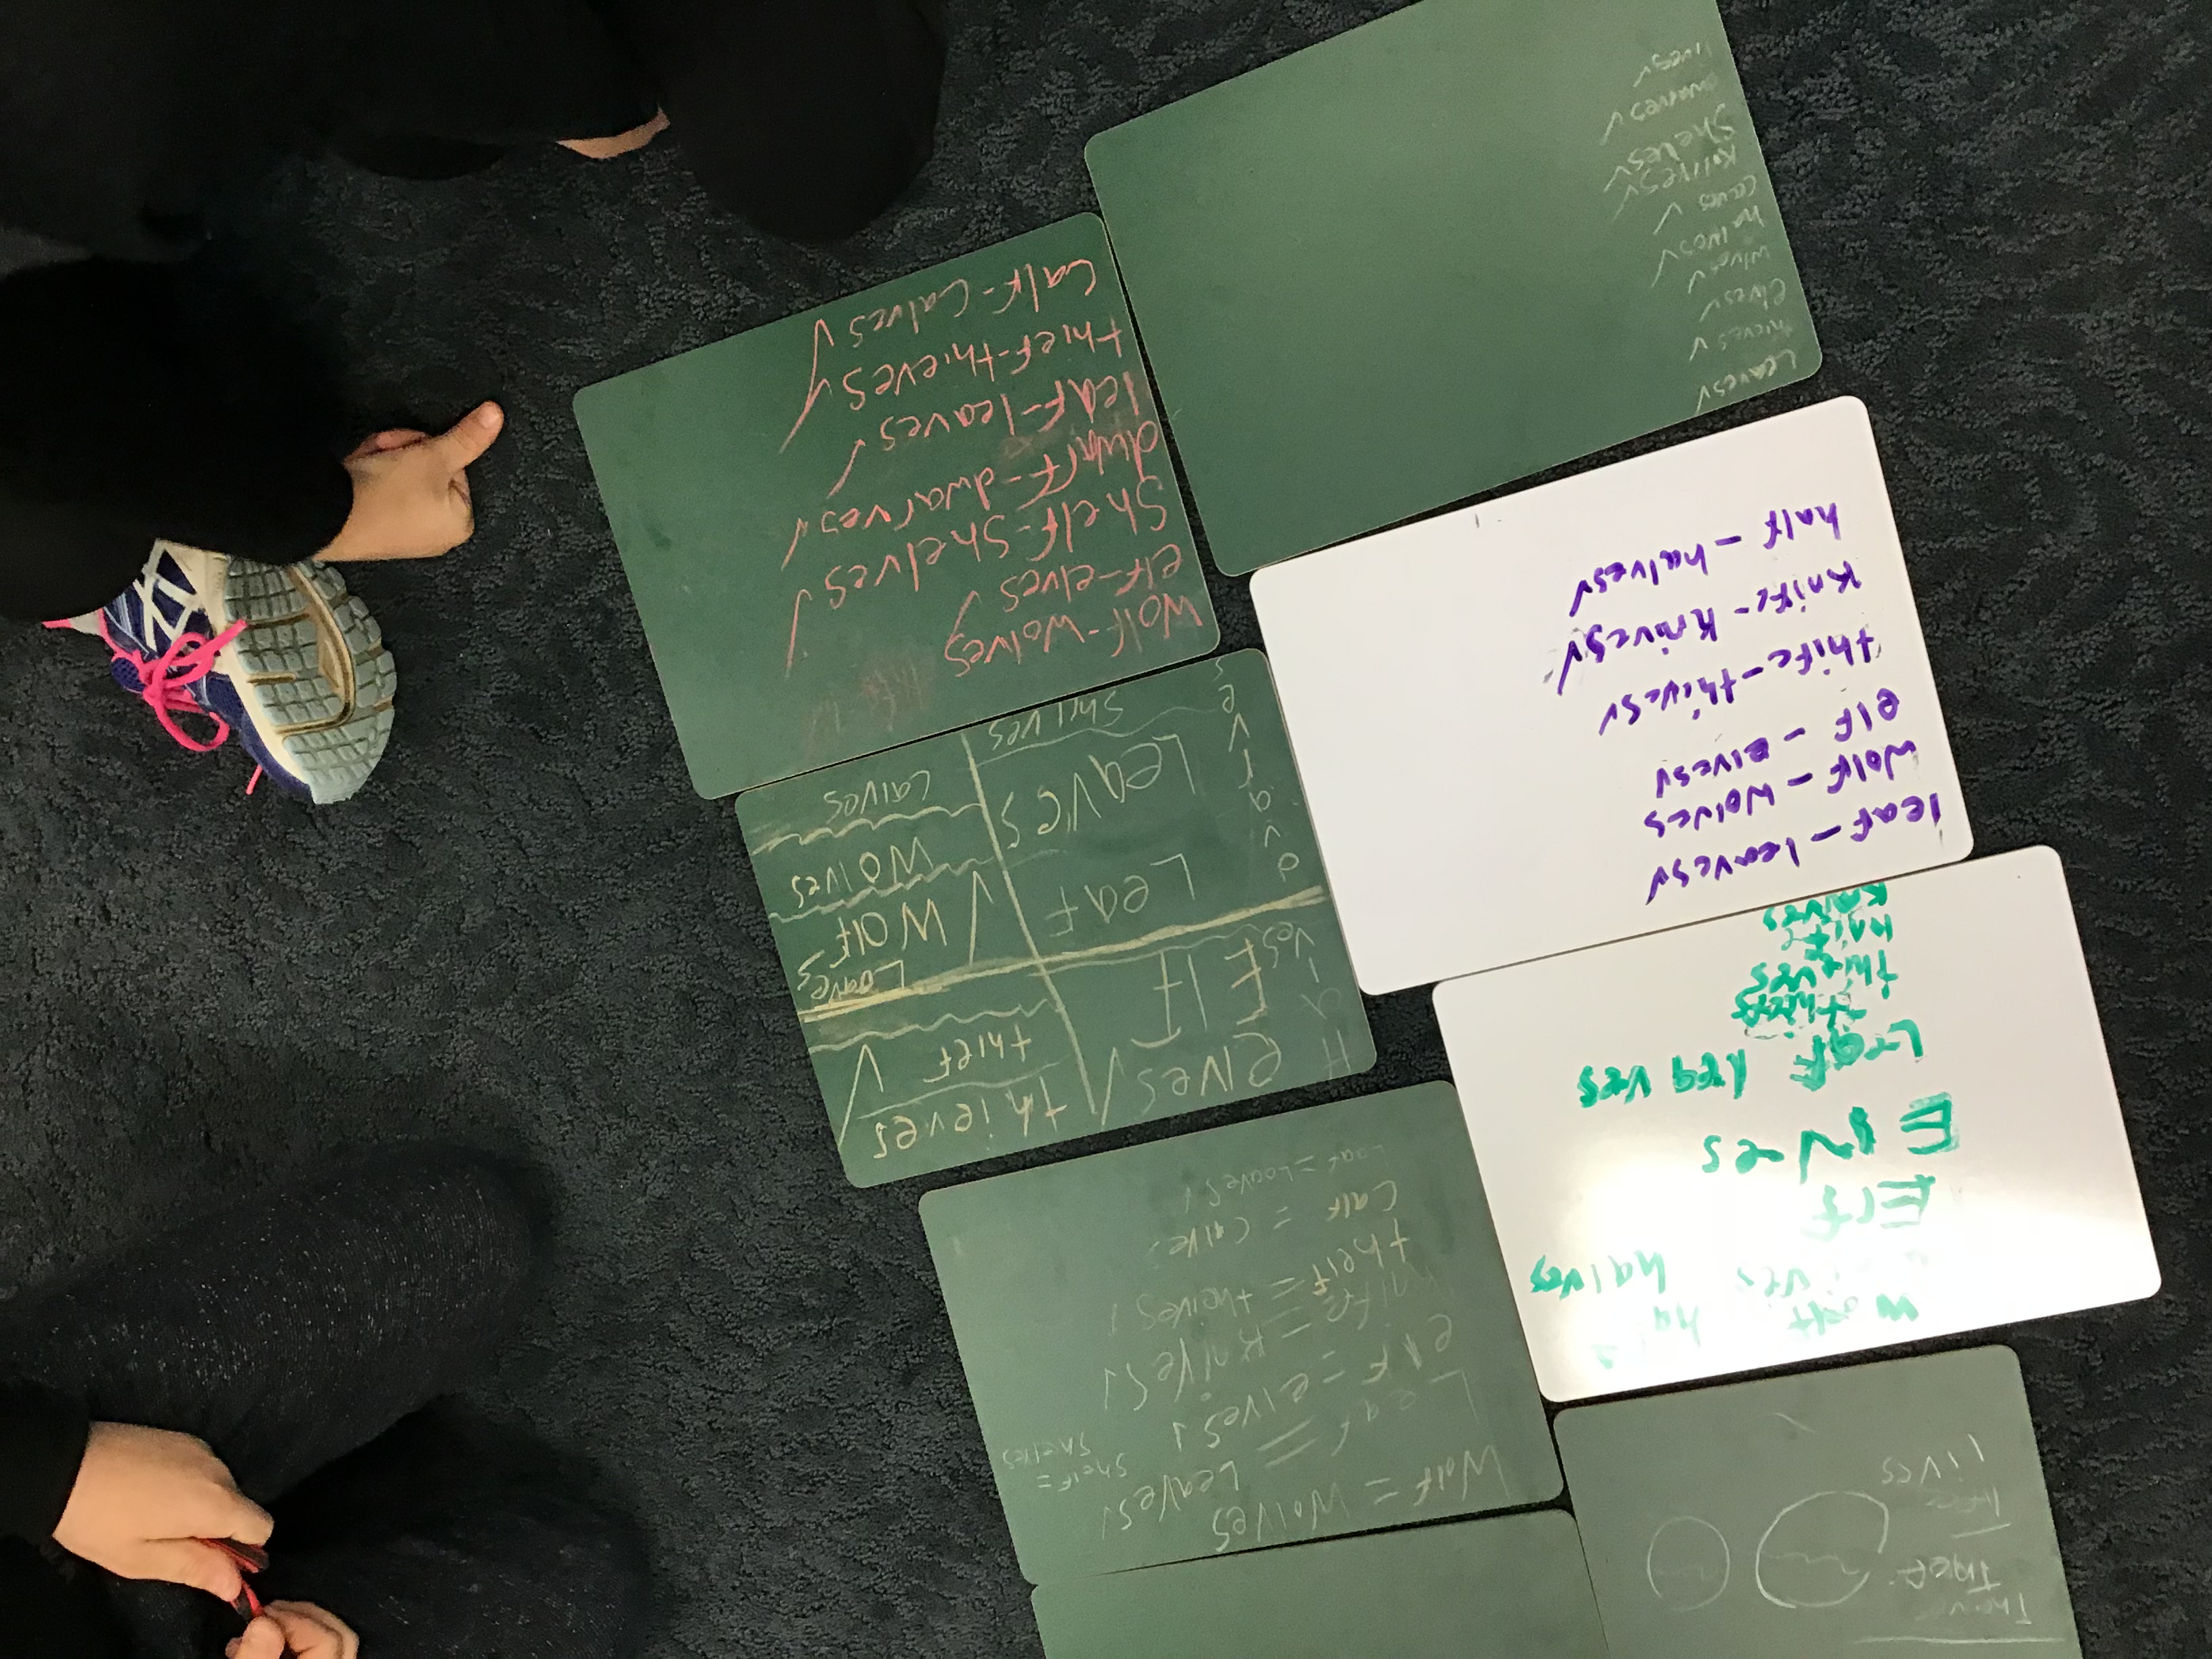 Leaves✓
thieves✓
elves✓
wives✓
halves✓
Knives✓
Shelves✓
lives✓
Wolf-Wolves
elf-elves✓
Shelf-Shelves✓
dwarf-dwarves✓
leaf-leaves✓
thief-thieves✓
Calf-Calves✓
leaf - leaves✓
wolf - wolves
elf - elves✓
thife - thives✓
Knife - Knives✓
half - halves✓
elves✓
thieves
Elf
thief ✓
Leaf
Loaves
✓ Wolf
Wolves
Leaves
Calves
Shelves
halves
Elf
Leaf leaves
thieves
knife
Knives
Wolf = Wolves
Leaf = Leaves✓
Shelf =
Shelves
elf = elves✓
Knife = Knives✓
theif = theives✓
Calf = Calves
Loaf = Loaves✓
Lives